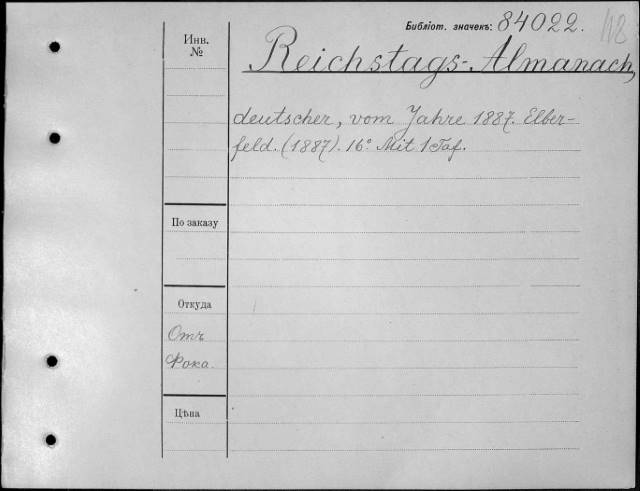 Библіот. значекъ: 84022.
Инв.
№
Reichstags-Almanach,
deutscher, vom Jahre 1887. Elber-
feld. (1887). 16° Mit 1 Taf.
По заказу
Откуда
Отъ
Фока.
Цѣна